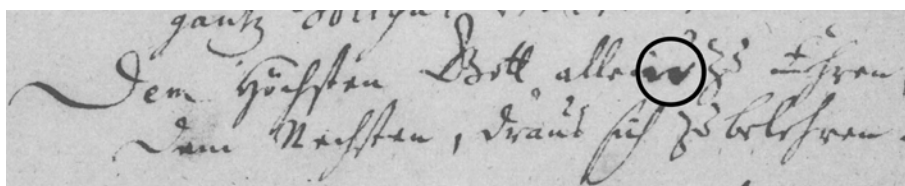 gantz
Dem Höchsten Gott allein zu Ehren,
Dem Nechsten, draus sich zu belehren.